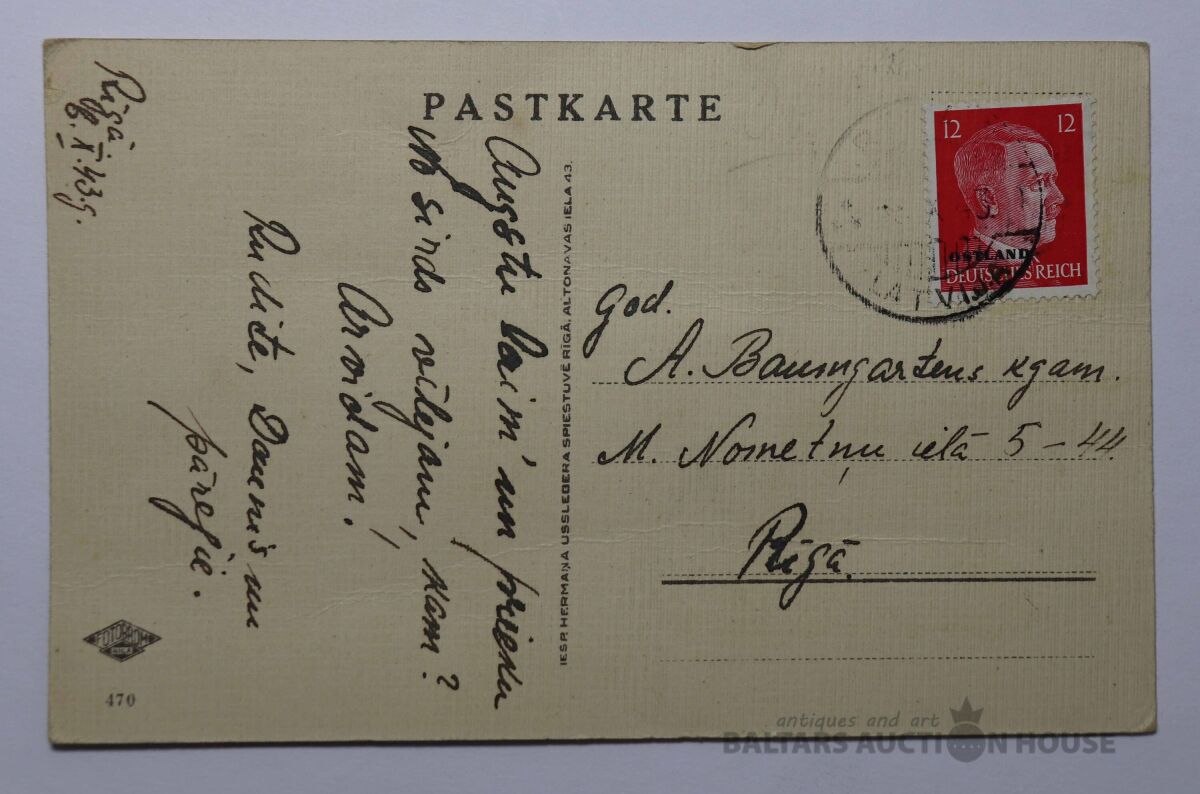 PASTKARTE
Rīgā.
8. X. 43. g.
Augstu laim' un prieku
No sirds vēlejam, kam?
Arvidam!
Rudīte, Daunis un
pārejie.
IESP. HERMAŅA USSLEBERA SPIESTUVĒ RĪGĀ, ALTONAVAS IELA 43.
12 12
OSTLAND
DEUTSCHES REICH
LATVIJA
God.
A. Baumgartens kgam.
M. Nometņu ielā 5-44.
Rīgā.
FOTOBROM
RIGA
470
antiques and art
BALTARS AUCTION HOUSE